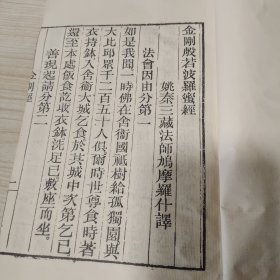 金剛般若波羅蜜經
姚秦三藏法師鳩摩羅什譯
法會因由分第一
如是我聞一時佛在舍衛國祇樹給孤獨園與
大比丘眾千二百五十人俱爾時世尊食時著
衣持鉢入舍衛大城乞食於其城中次第乞已
還至本處飯食訖收衣鉢洗足已敷座而坐
善現起請分第二
金剛經
一